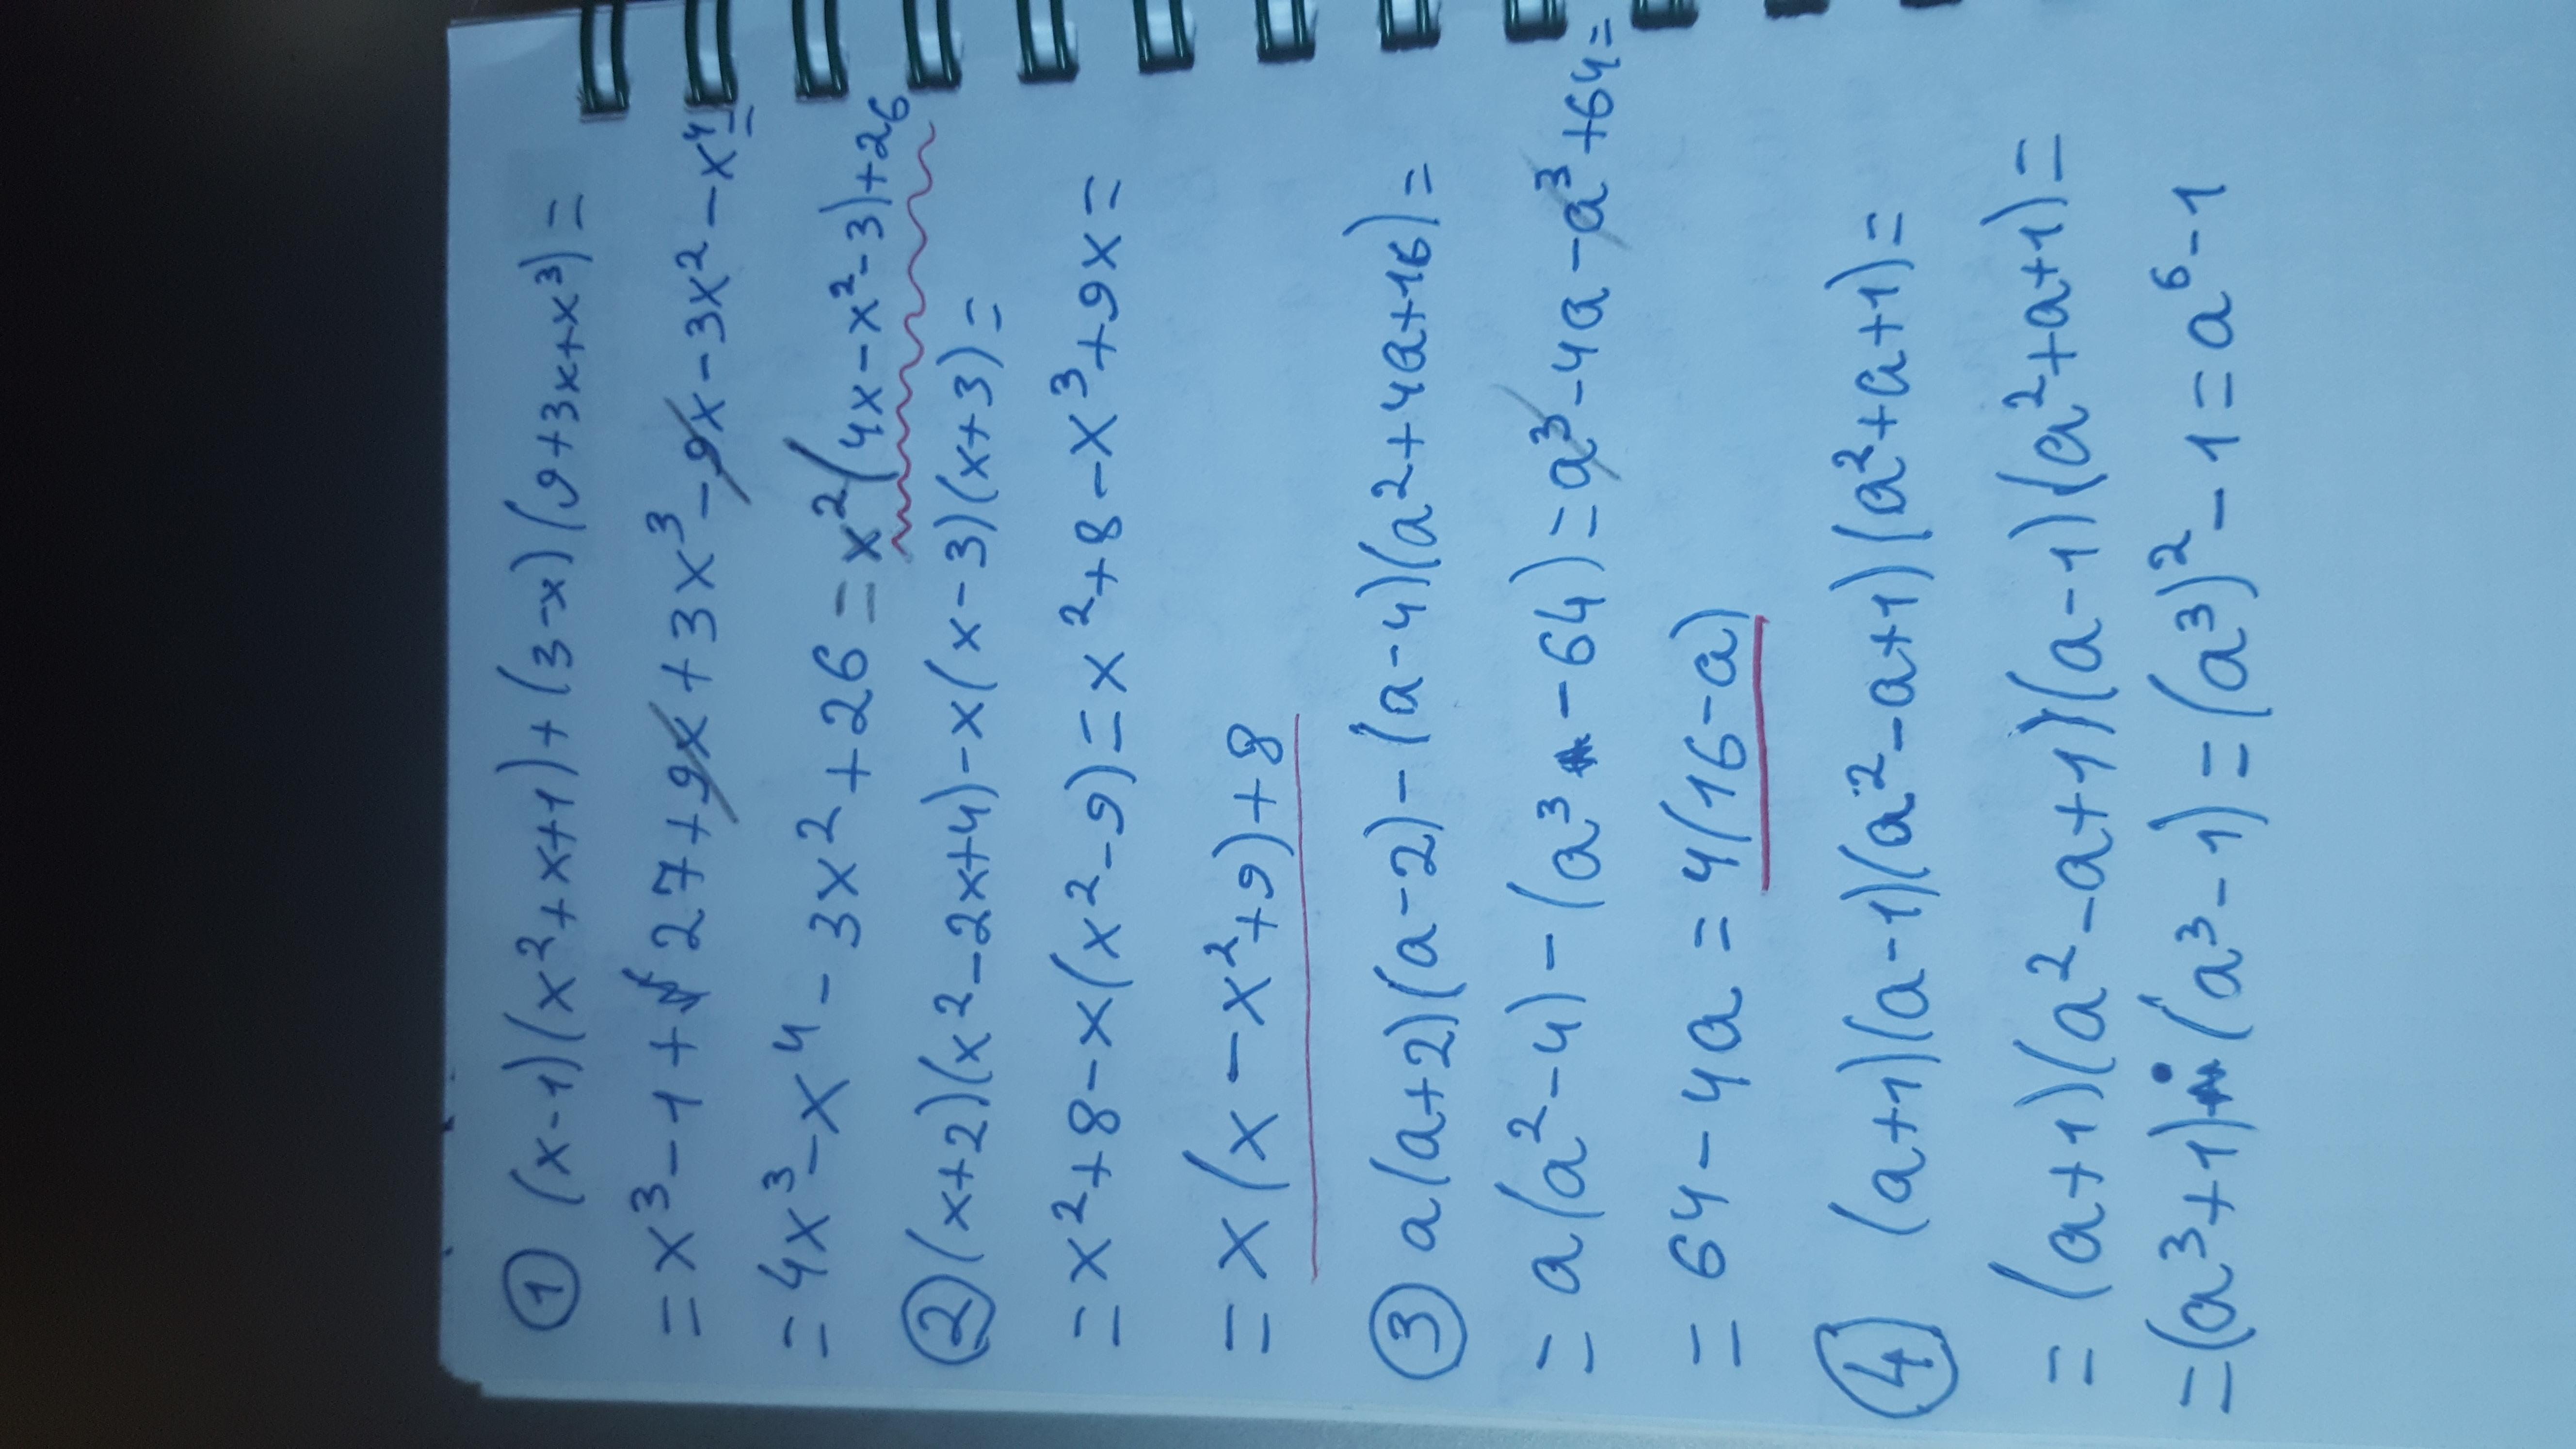 ① (x-1)(x²+x+1)+(3-x)(9+3x+x³)=
=x³-1+27+9x+3x³-9x-3x²-x⁴=
=4x³-x⁴-3x²+26=x²(4x-x²-3)+26
② (x+2)(x²-2x+4)-x(x-3)(x+3)=
=x²+8-x(x²-9)=x²+8-x³+9x=
=x(x-x²+9)+8
③ a(a+2)(a-2)-(a-4)(a²+4a+16)=
=a(a²-4)-(a³-64)=a³-4a-a³+64=
=64-4a=4(16-a)
④ (a+1)(a-1)(a²-a+1)(a²+a+1)=
=(a+1)(a²-a+1)(a-1)(a²+a+1)=
=(a³+1)·(a³-1)=(a³)²-1=a⁶-1